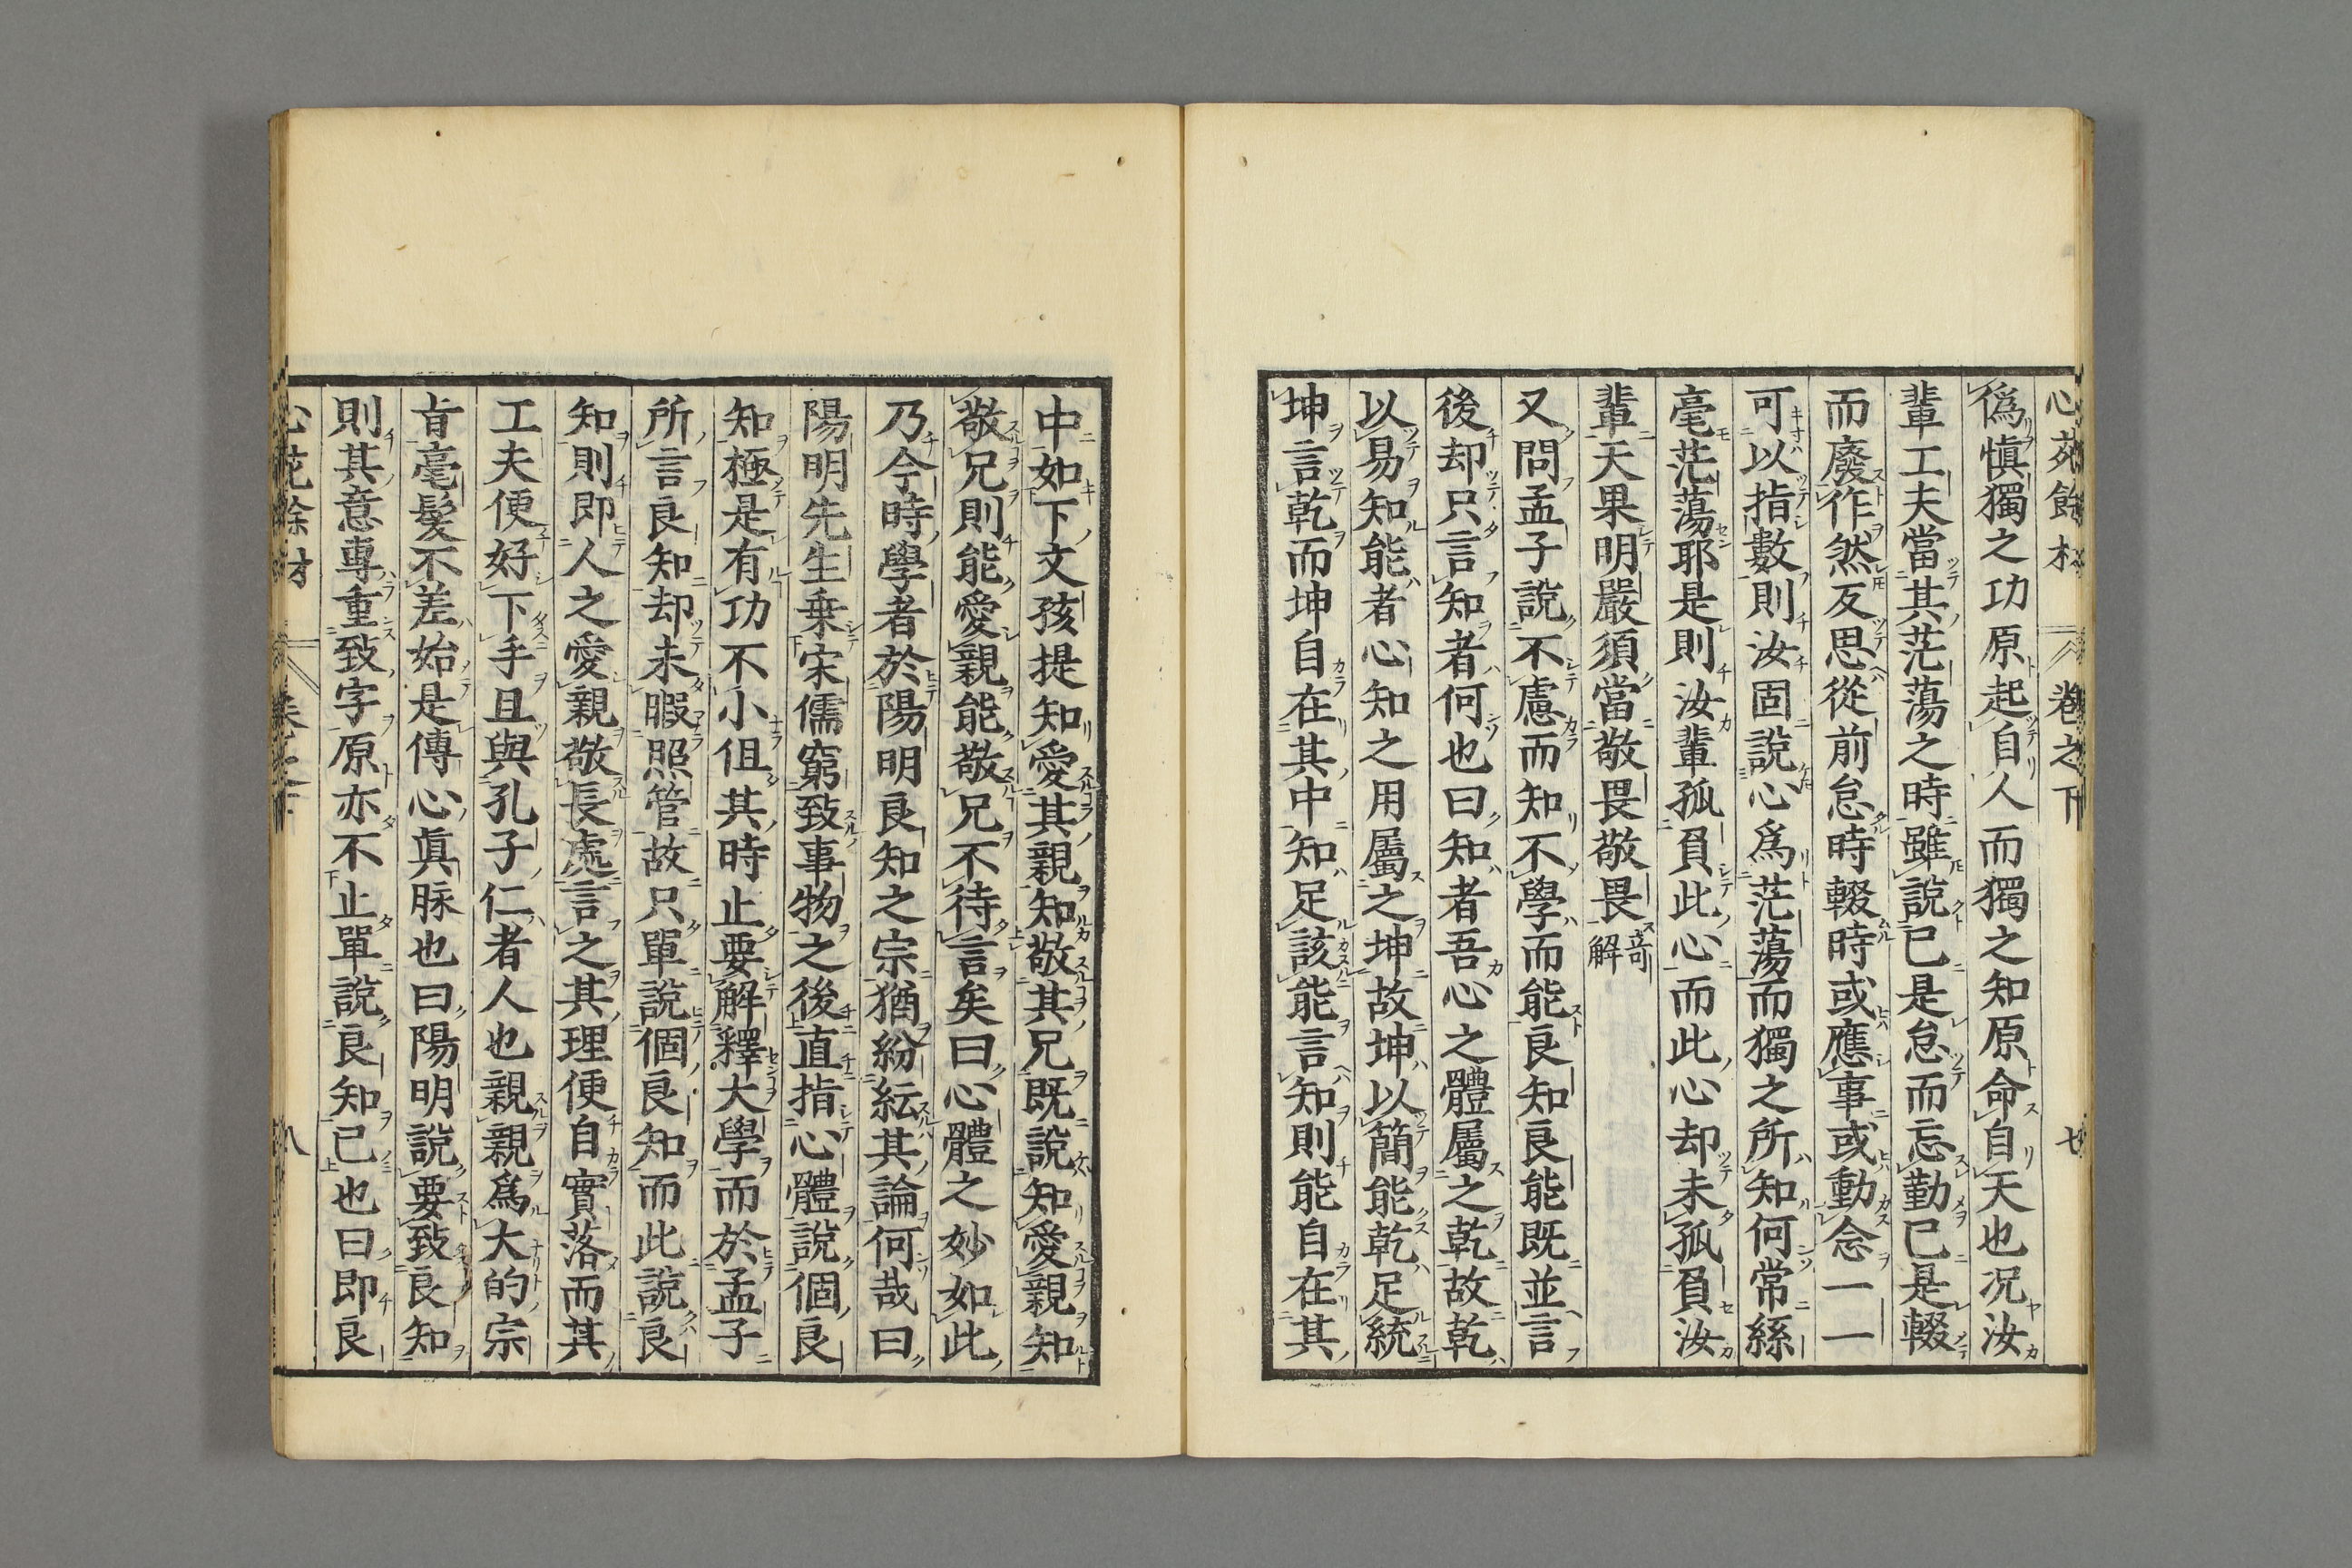 心苑餘材 卷之下 七
僞愼獨之功原起自人而獨之知原命自天也况汝
輩工夫當其茫蕩之時雖說已是怠而忘勤已是輟
而廢作然反思從前怠時輟時或應事或動念一一
可以指數則汝固說心爲茫蕩而獨之所知何常絲
毫茫蕩耶是則汝輩孤負此心而此心却未孤負汝
輩天果明嚴須當敬畏敬畏奇解
又問孟子說不慮而知不學而能良知良能既並言
後却只言知者何也曰知者吾心之體屬之乾故乾
以易知能者心知之用屬之坤故坤以簡能乾足統
坤言乾而坤自在其中知足該能言知則能自在其
中如下文孩提知愛其親知敬其兄既說知愛親知
敬兄則能愛親能敬兄不待言矣曰心體之妙如此
乃今時學者於陽明良知之宗猶紛紜其論何哉曰
陽明先生乗宋儒窮致事物之後直指心體說個良
知極是有功不小但其時止要解釋大學而於孟子
所言良知却未暇照管故只單說個良知而此說良
知則即人之愛親敬長處言之其理便自實落而其
工夫便好下手且與孔子仁者人也親親爲大的宗
旨毫髮不差始是傳心眞脉也曰陽明說要致良知
則其意專重致字原亦不止單說良知已也曰即良